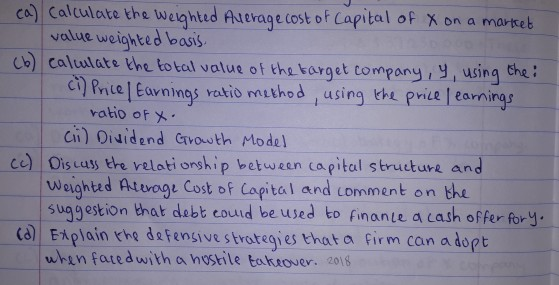 (a) Calculate the Weighted Average cost of Capital of X on a market
value weighted basis.
(b) Calculate the total value of the target company, Y, using the:
(i) Price/Earnings ratio method, using the price/earnings
ratio of X.
(ii) Dividend Growth Model
(c) Discuss the relationship between capital structure and
Weighted Average Cost of Capital and comment on the
suggestion that debt could be used to finance a cash offer for Y.
(d) Explain the defensive strategies that a firm can adopt
when faced with a hostile takeover. 2018